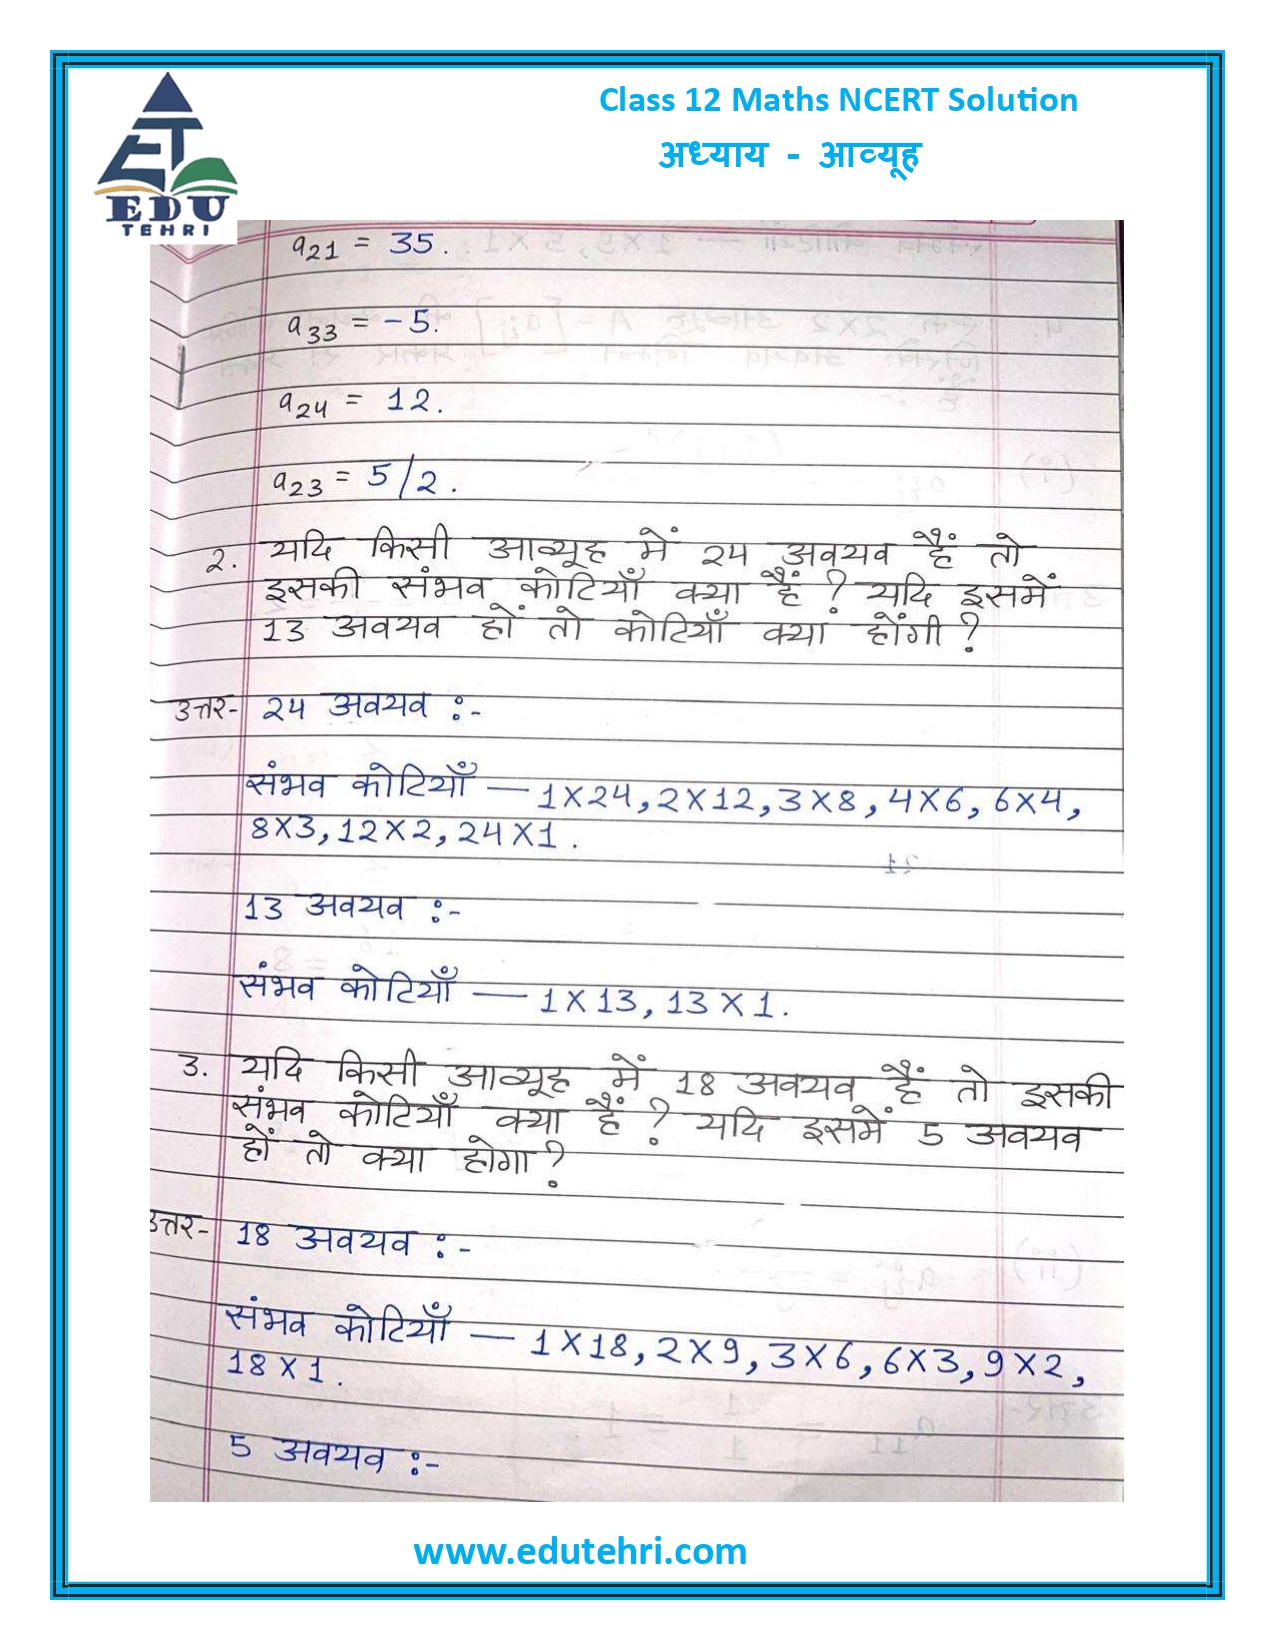 Class 12 Maths NCERT Solution
अध्याय - आव्यूह
EDU
TEHRI
a21 = 35.
a33 = -5.
a24 = 12.
a23 = 5/2.
2. यदि किसी आव्यूह में 24 अवयव हैं तो
इसकी संभव कोटियाँ क्या हैं ? यदि इसमें
13 अवयव हों तो कोटियाँ क्या होंगी ?
उत्तर- 24 अवयव :-
संभव कोटियाँ — 1X24, 2X12, 3X8, 4X6, 6X4,
8X3, 12X2, 24X1.
13 अवयव :-
संभव कोटियाँ — 1X13, 13X1.
3. यदि किसी आव्यूह में 18 अवयव हैं तो इसकी
संभव कोटियाँ क्या हैं ? यदि इसमें 5 अवयव
हों तो क्या होगा ?
उत्तर- 18 अवयव :-
संभव कोटियाँ — 1X18, 2X9, 3X6, 6X3, 9X2,
18X1.
5 अवयव :-
www.edutehri.com